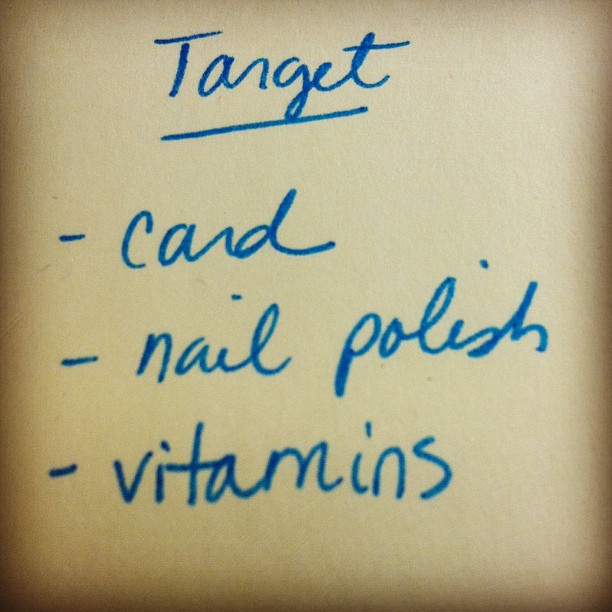 Target
- card
- nail polish
- vitamins